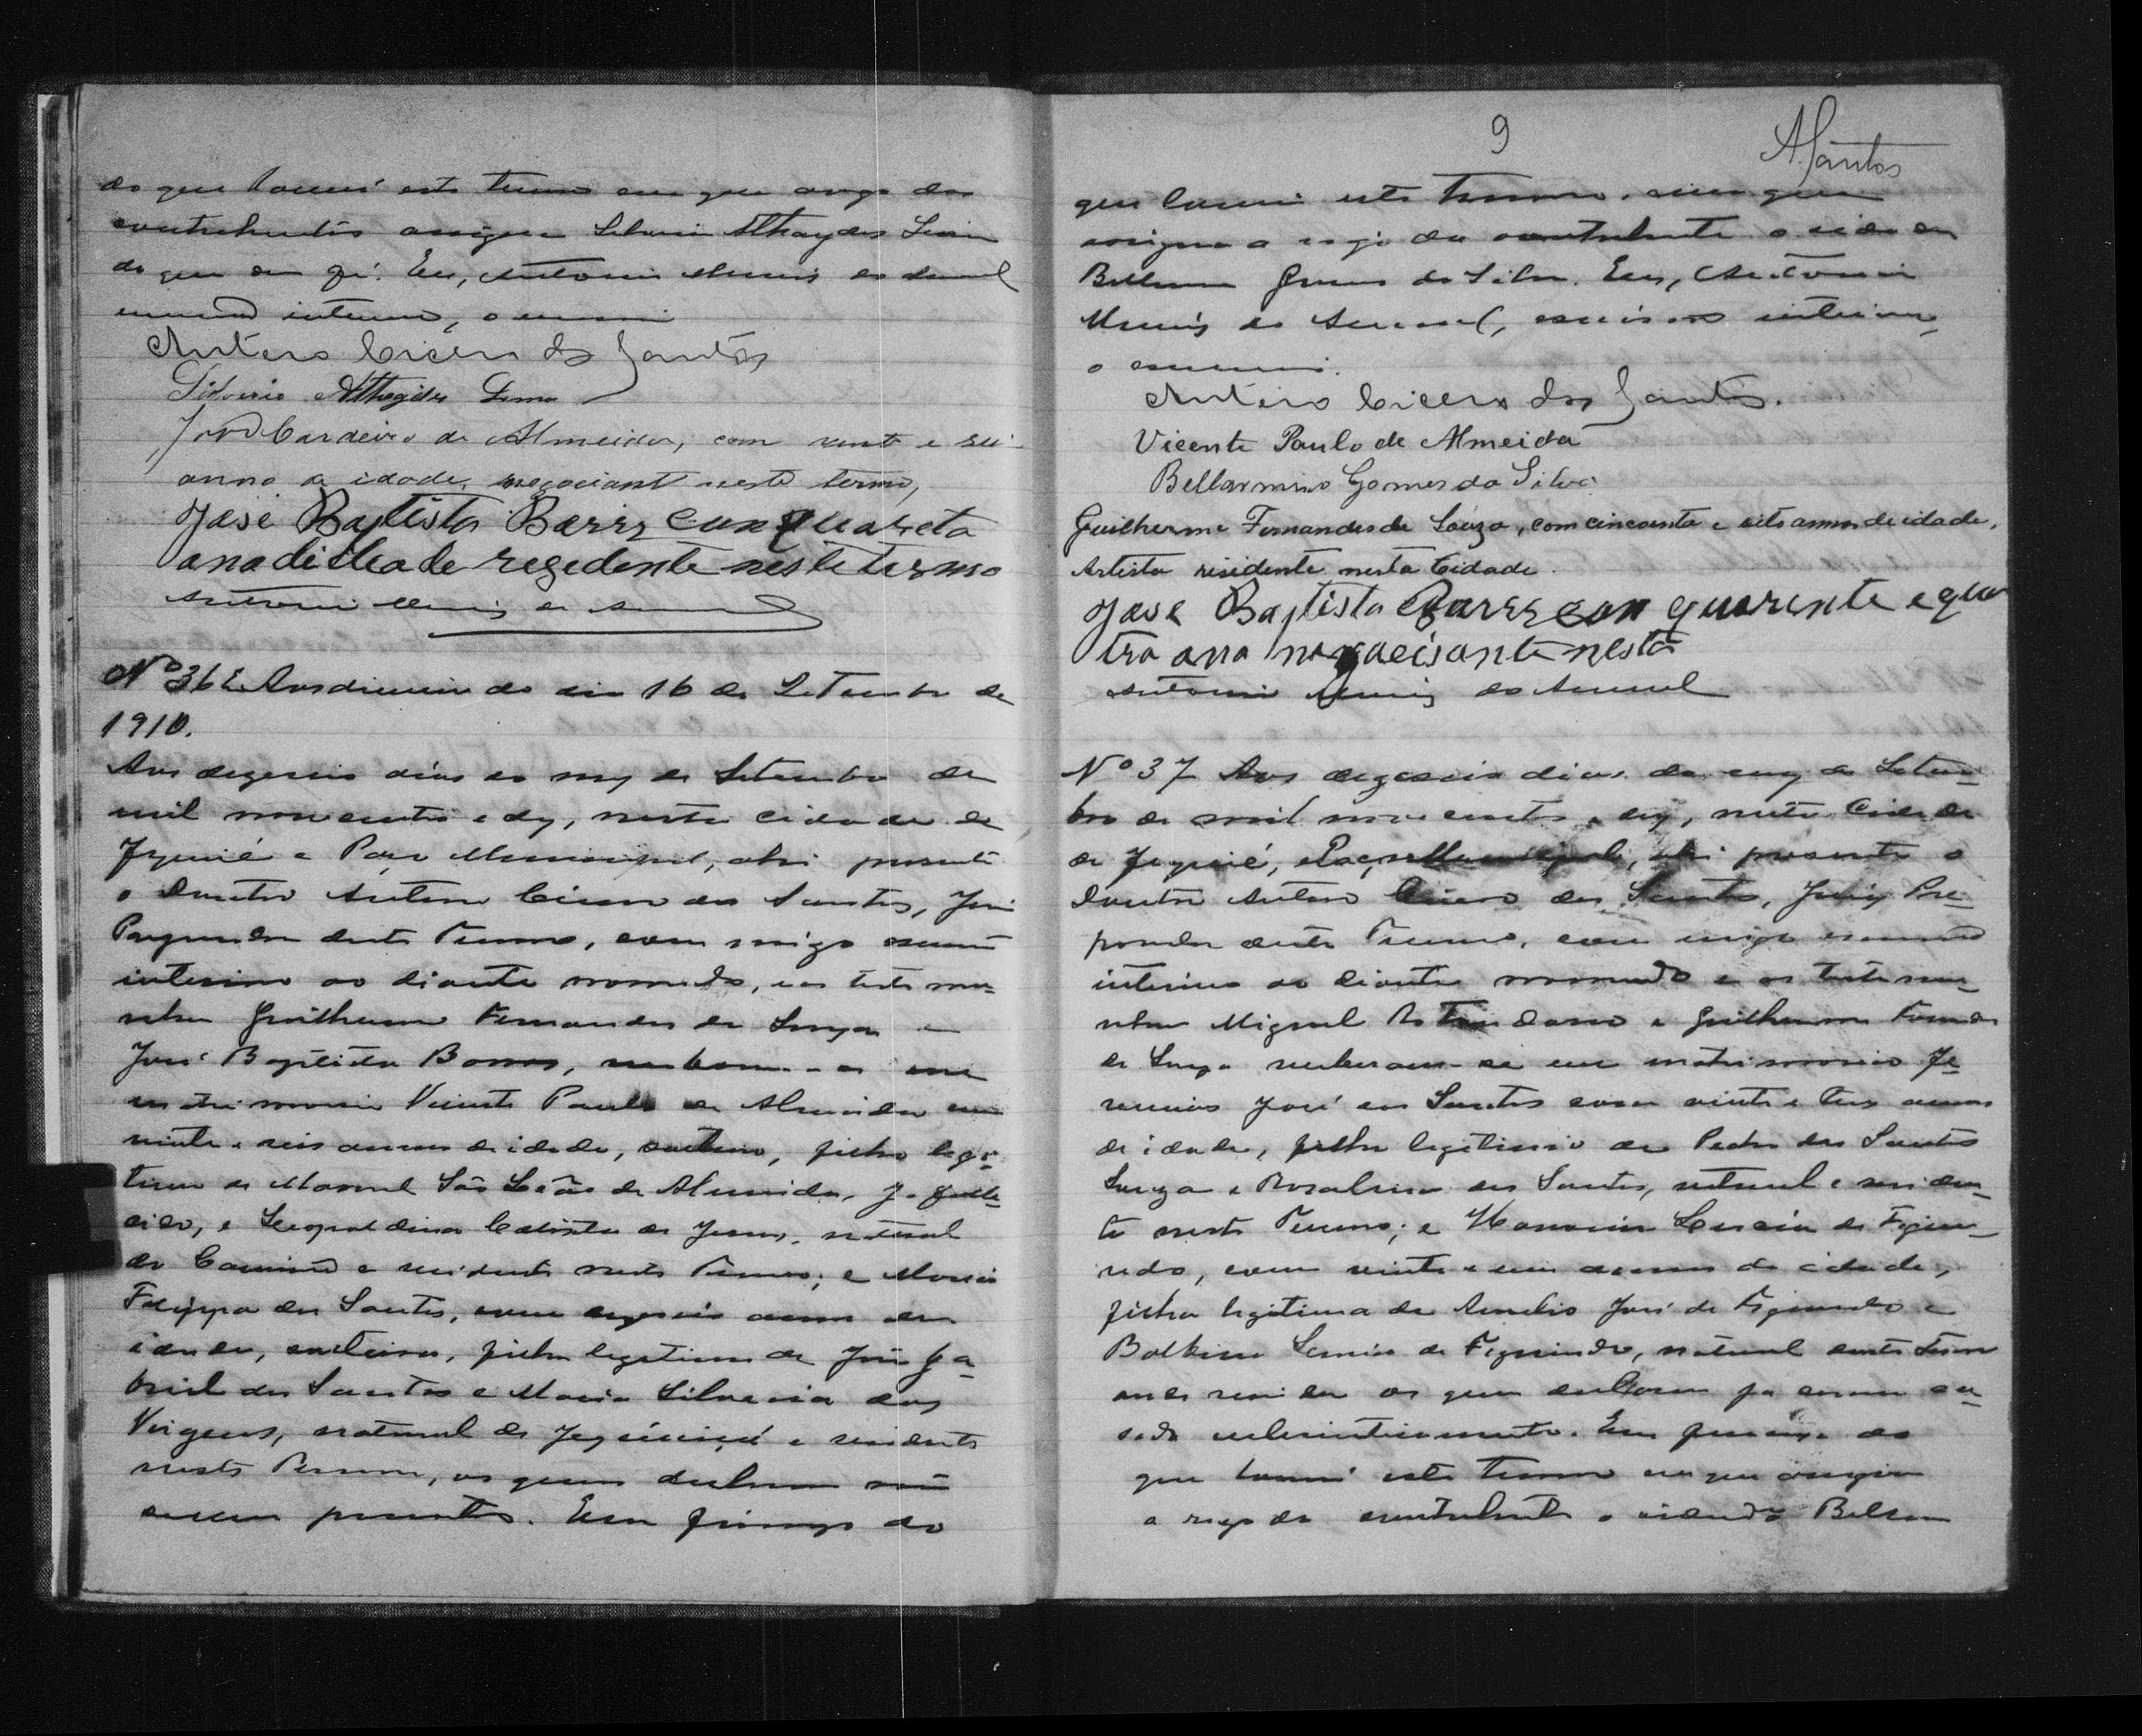 do que lavrei este termo em que a rogo dos
contrahentes assigna Silverio Athaydes Lima
do que dou fé. Eu, Antonio Muniz do Amaral
escrivão interino, o escrevi
Antero Cicero dos Santos
Silverio Athaydes Lima
José Cardeiro de Almeida, com vint e seis
anno de idade, negociant neste termo,
José Baptista Barrs con quareta
ana di ideade regedente neste termo
Antonio Muniz do Amaral
Nº 36 Audiencia do dia 16 de Setembro de
1910.
Aos dezeseis dias do mez de Setembro de
mil novecentos e dez, nesta cidade de
Jequié e Paço Municipal, ahi presente
o Doutor Antero Cicero dos Santos, Juiz
Preparador deste Termo, com migo escrivão
interino ao diante nomeado, e as testemu-
nhas Guilherme Fernandes de Souza e
José Baptista Barros, receberam-se em
matrimonio Vicente Paulo de Almeida com
vinte e seis annos de idade, solteiro, filho legi-
timo de Manoel São Leão de Almeida, ja falle-
cido, e Leopoldina Calista de Jesus, natural
de e residente neste Termo; e Maria
Felippa dos Santos, com dezeseis annos de
idade, solteira, filha legitima de José Ga-
briel dos Santos e Maria Silveria das
Virgens, natural de Jequiriçá e residente
neste Termo, os quaes declaram não
serem parentes. Em firmeza do
9
ASantos
que lavrei este termo, em que
assigna a rogo da contrahente o cidadão
Bellarmino Gomes da Silva. Eu, Antonio
Muniz do Amaral, escrivão interino,
o escrevi.
Antero Cicero dos Santos.
Vicente Paulo de Almeida
Bellarmino Gomes da Silva
Guilherme Fernandes de Souza, com cincoenta e oito annos de idade,
Artista residente nesta Cidade.
José Baptista Barrs con quarenta e qua
tro ana nagacisante nesta
Antonio Muniz do Amaral
Nº 37 Aos dezeseis dias do mez de Setem-
bro de mil novecentos e dez, nesta Cidade
de Jequié, e Paço Municipal, ahi presente o
Doutor Antero Cicero dos Santos, Juiz Pre-
parador deste Termo, com migo escrivão
interino ao diante nomeado e as testemu-
nhas Miguel e Guilherme Fernandes
de Souza receberam-se em matrimonio Je-
remias José dos Santos com vinte e tres annos
de idade, filho legitimo de Pedro dos Santos
Souza e Rosalina dos Santos, natural e residen-
te neste Termo; e Honoria de Figuei-
redo, com vinte e um annos de idade,
filha legitima de Aurelio José de Figueiredo e
Balbina de Figueiredo, natural deste Termo
onde reside os quaes declaram ja serem ca-
sados ecclesiasticamente. Em firmeza do
que lavrei este termo em que assigna
a rogo da contrahente o cidadão Bellar